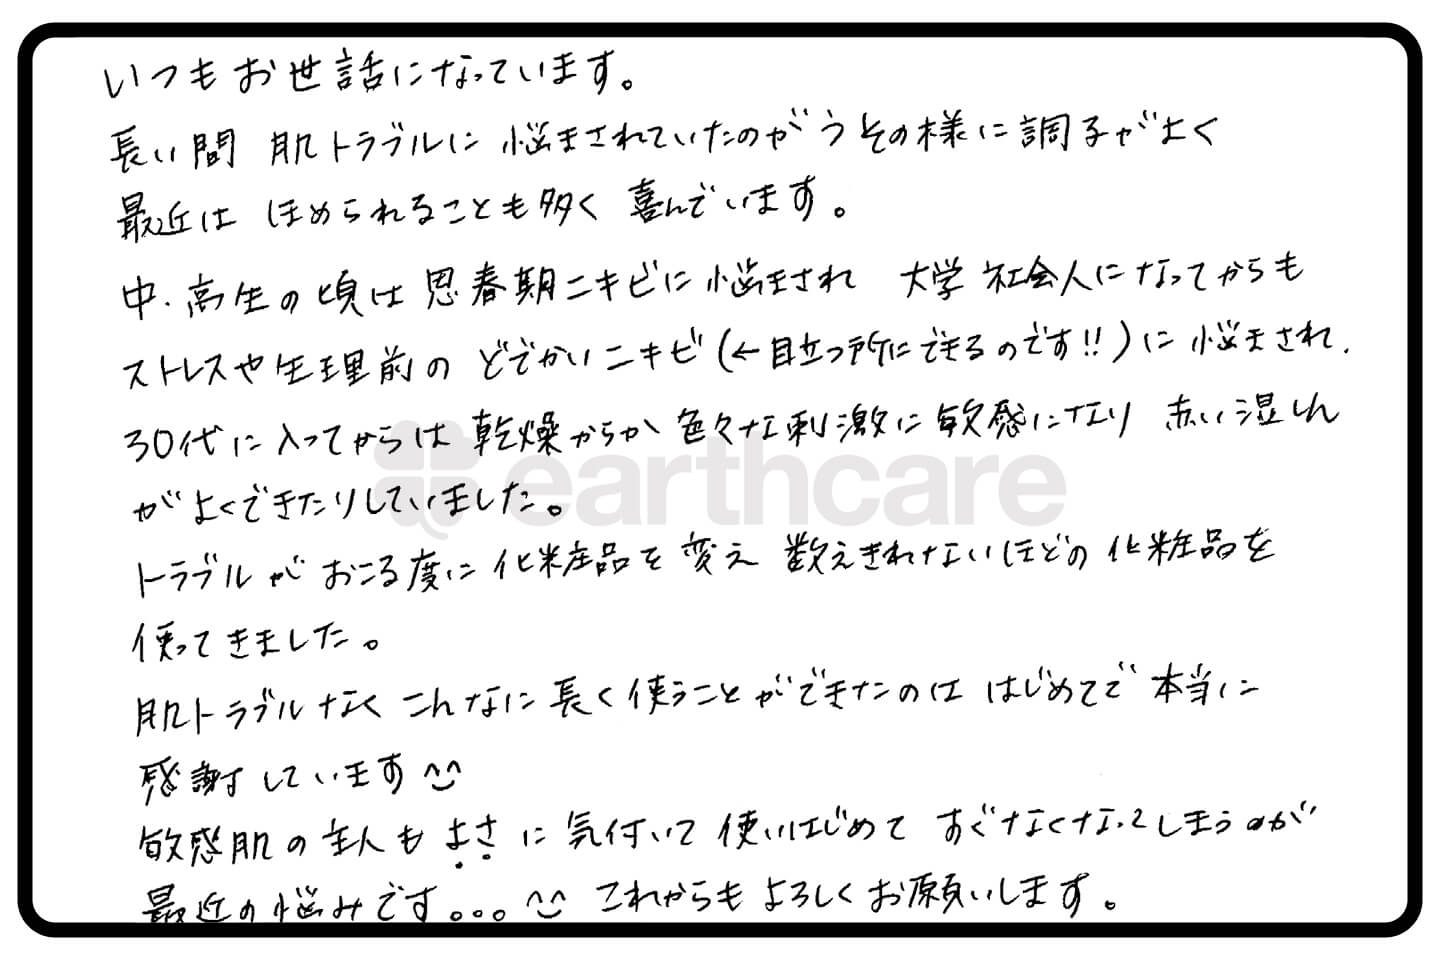 いつもお世話になっています。
長い間 肌トラブルに 悩まされていたのがうその様に調子がよく
最近は ほめられることも多く 喜んでいます。
中・高生の頃は思春期ニキビに悩まされ 大学 社会人になってからも
ストレスや生理前の どでかいニキビ(←目立つ所にできるのです!!)に悩まされ、
30代に入ってからは 乾燥からか 色々な刺激に敏感になり 赤い湿しん
がよくできたりしていました。
earthcare
トラブルが おこる度に 化粧品を 変え 数えきれないほどの 化粧品を
使ってきました。
肌トラブルなく こんなに 長く 使うことができたのは はじめてで 本当に
感謝しています^^
敏感肌の主人も よさに 気付いて 使いはじめて すぐなくなってしまうのが
最近の悩みです。。。^^ これからも よろしくお願いします。